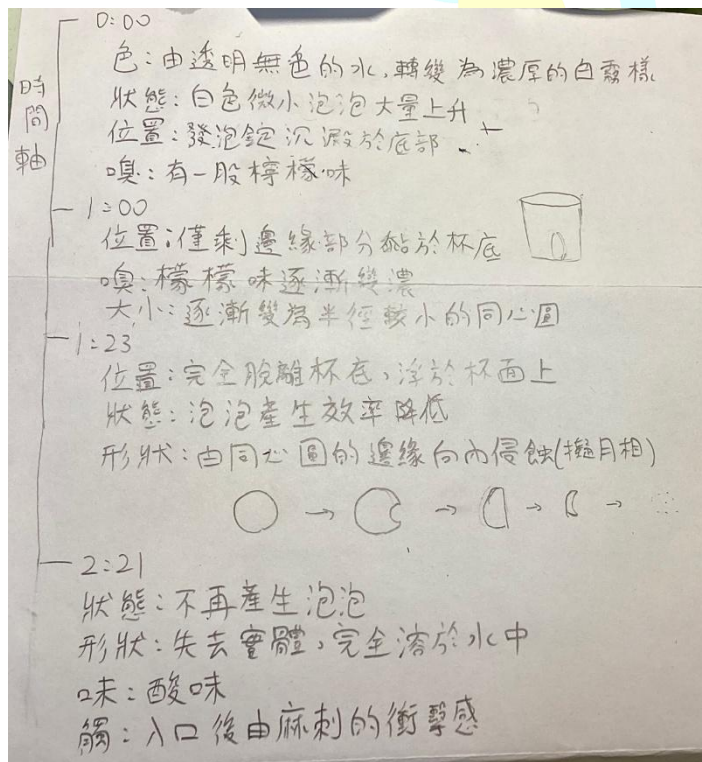 時間軸
0:00
色:由透明無色的水,轉變為濃厚的白霧樣
狀態:白色微小泡泡大量上升
位置:發泡錠沉澱於底部
嗅:有一股檸檬味
1:00
位置:僅剩邊緣部分黏於杯底
嗅:檬檬味逐漸變濃
大小:逐漸變為半徑較小的同心圓
1:23
位置:完全脫離杯底,浮於杯面上
狀態:泡泡產生效率降低
形狀:由同心圓的邊緣向內侵蝕(擬月相)
2:21
狀態:不再產生泡泡
形狀:失去實體,完全溶於水中
味:酸味
觸:入口後由麻刺的衝擊感